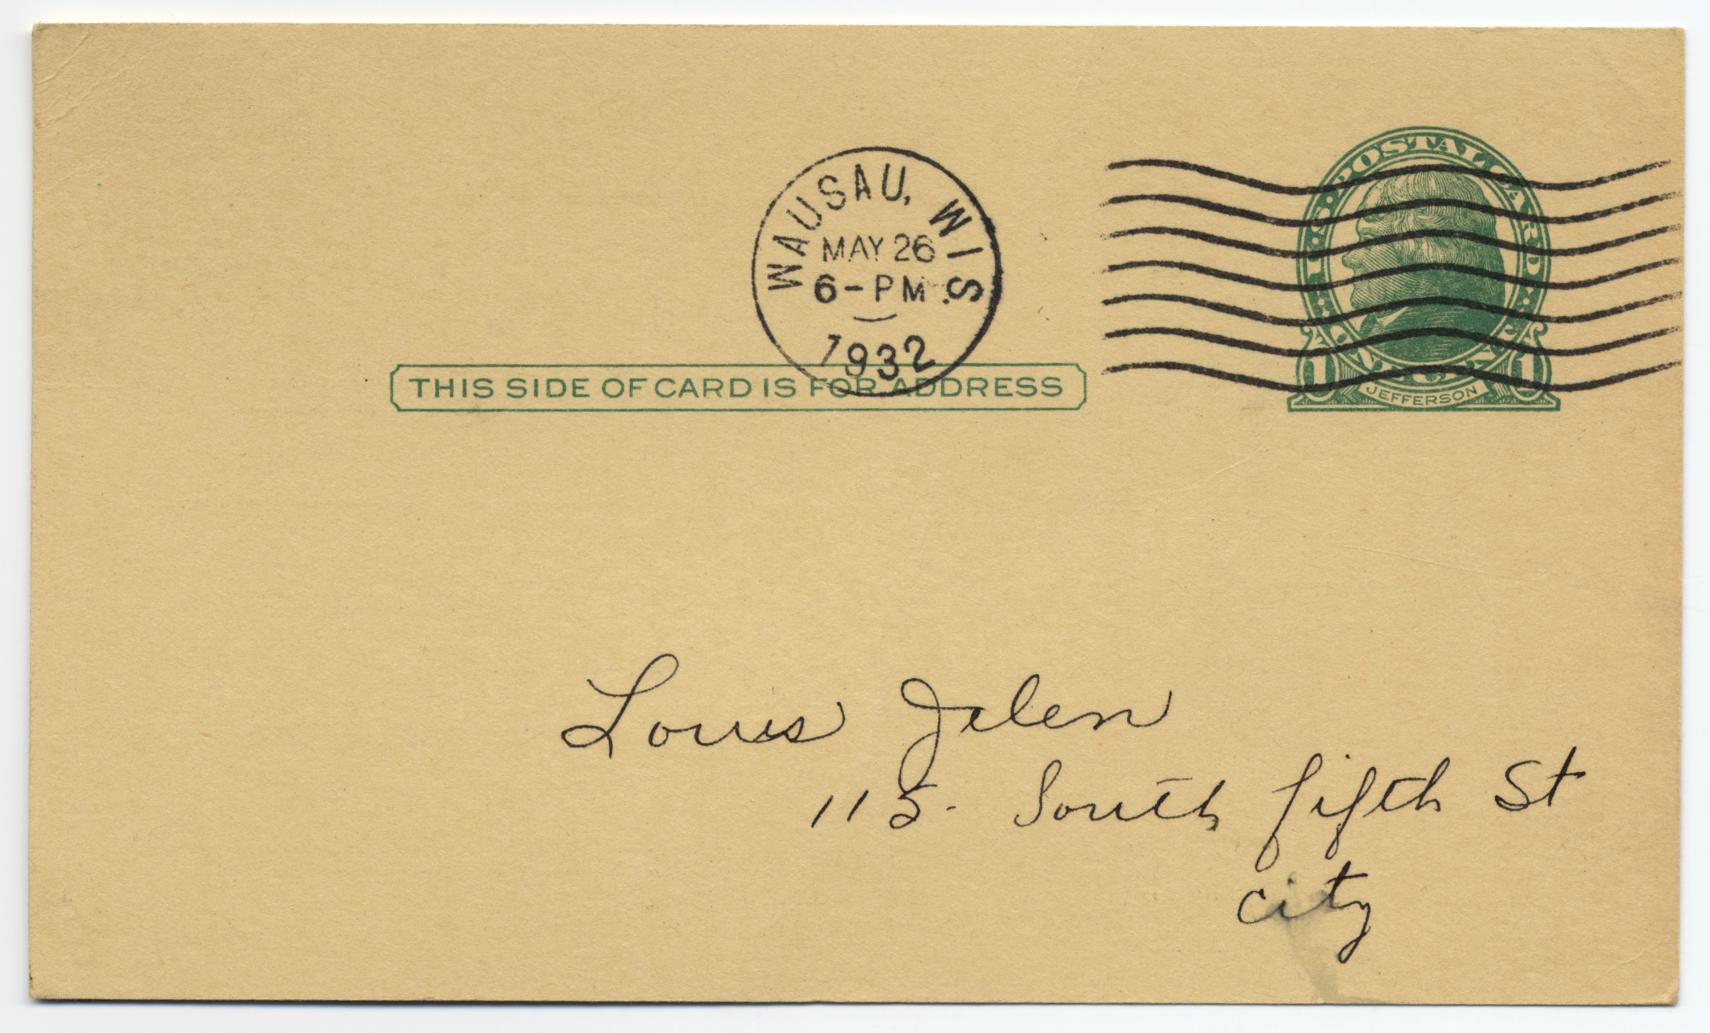 WAUSAU, WIS.
MAY 26
6-PM
1932
U.S. POSTAL CARD
1 1
JEFFERSON
THIS SIDE OF CARD IS FOR ADDRESS
Louis Jelen
115- South fifth St
City